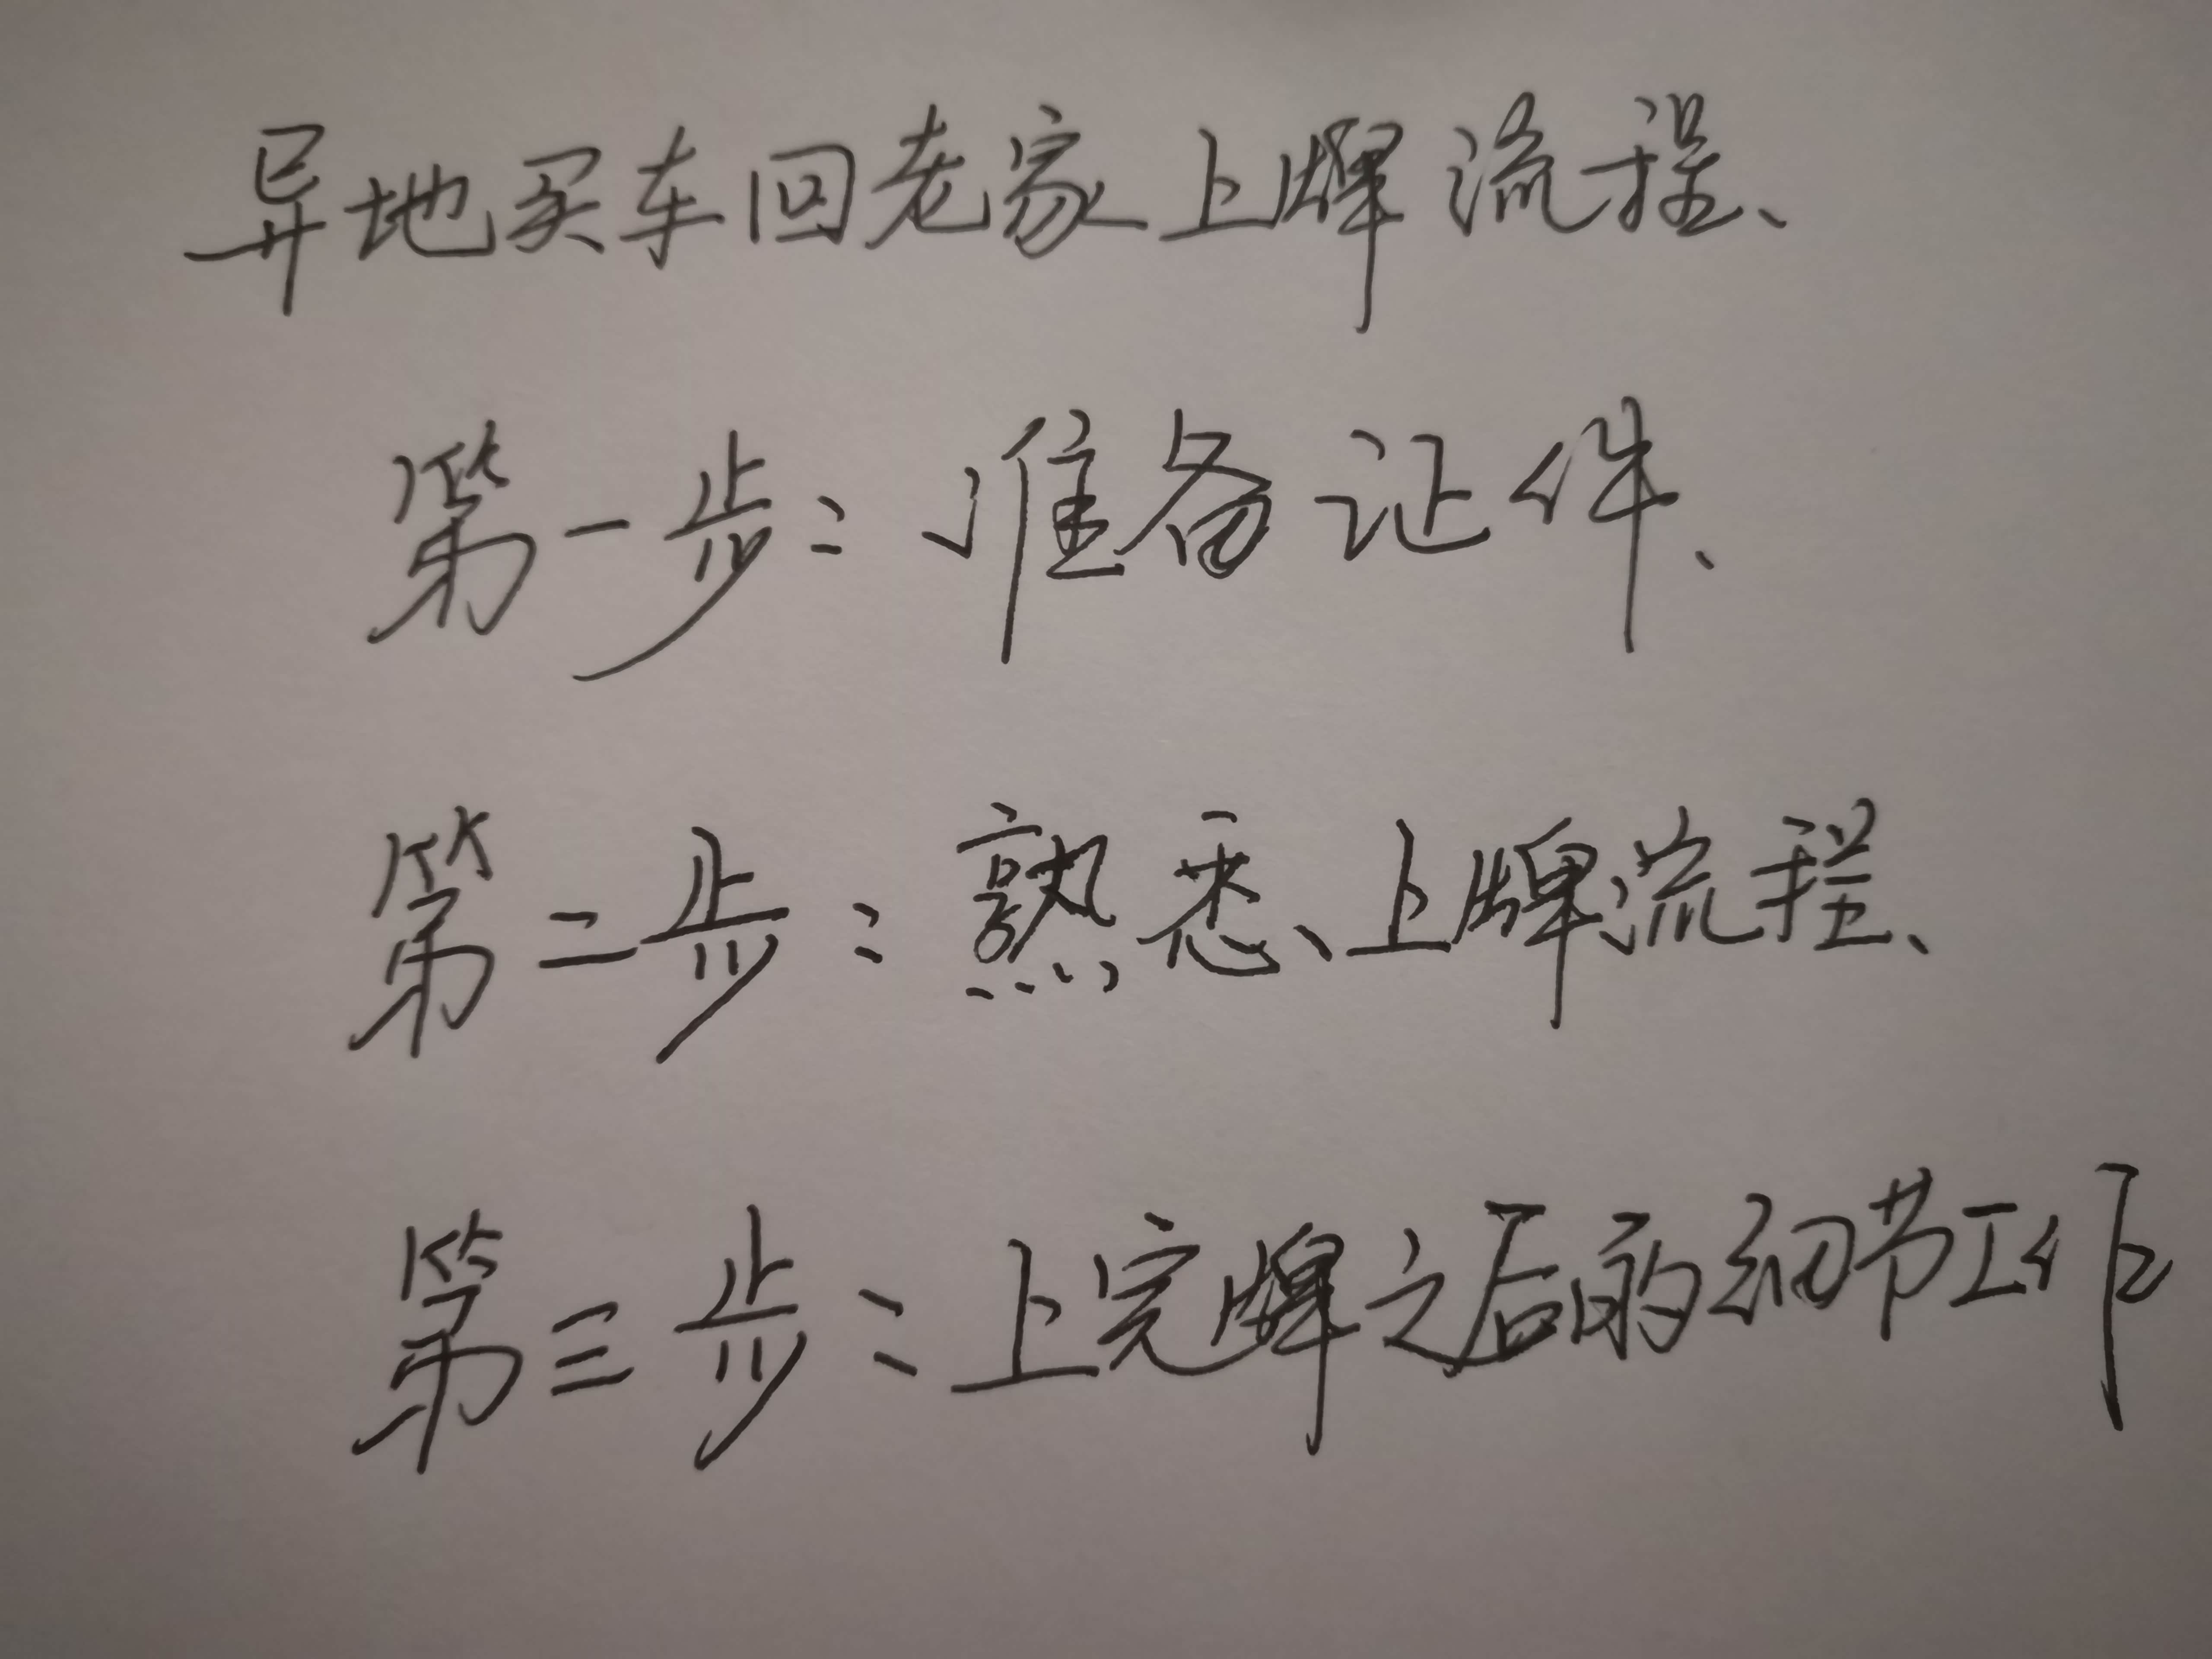 异地买车回老家上牌流程、
第一步：准备证件、
第二步：熟悉、上牌流程、
第三步：上完牌之后的细节工作